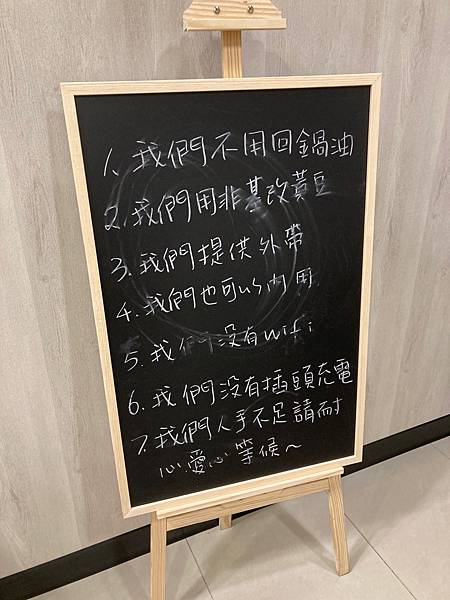 1. 我們不用回鍋油
2. 我們用非基改黃豆
3. 我們提供外帶
4. 我們也可以內用
5. 我們沒有wifi
6. 我們沒有插頭充電
7. 我們人手不足請耐
心愛心等候～